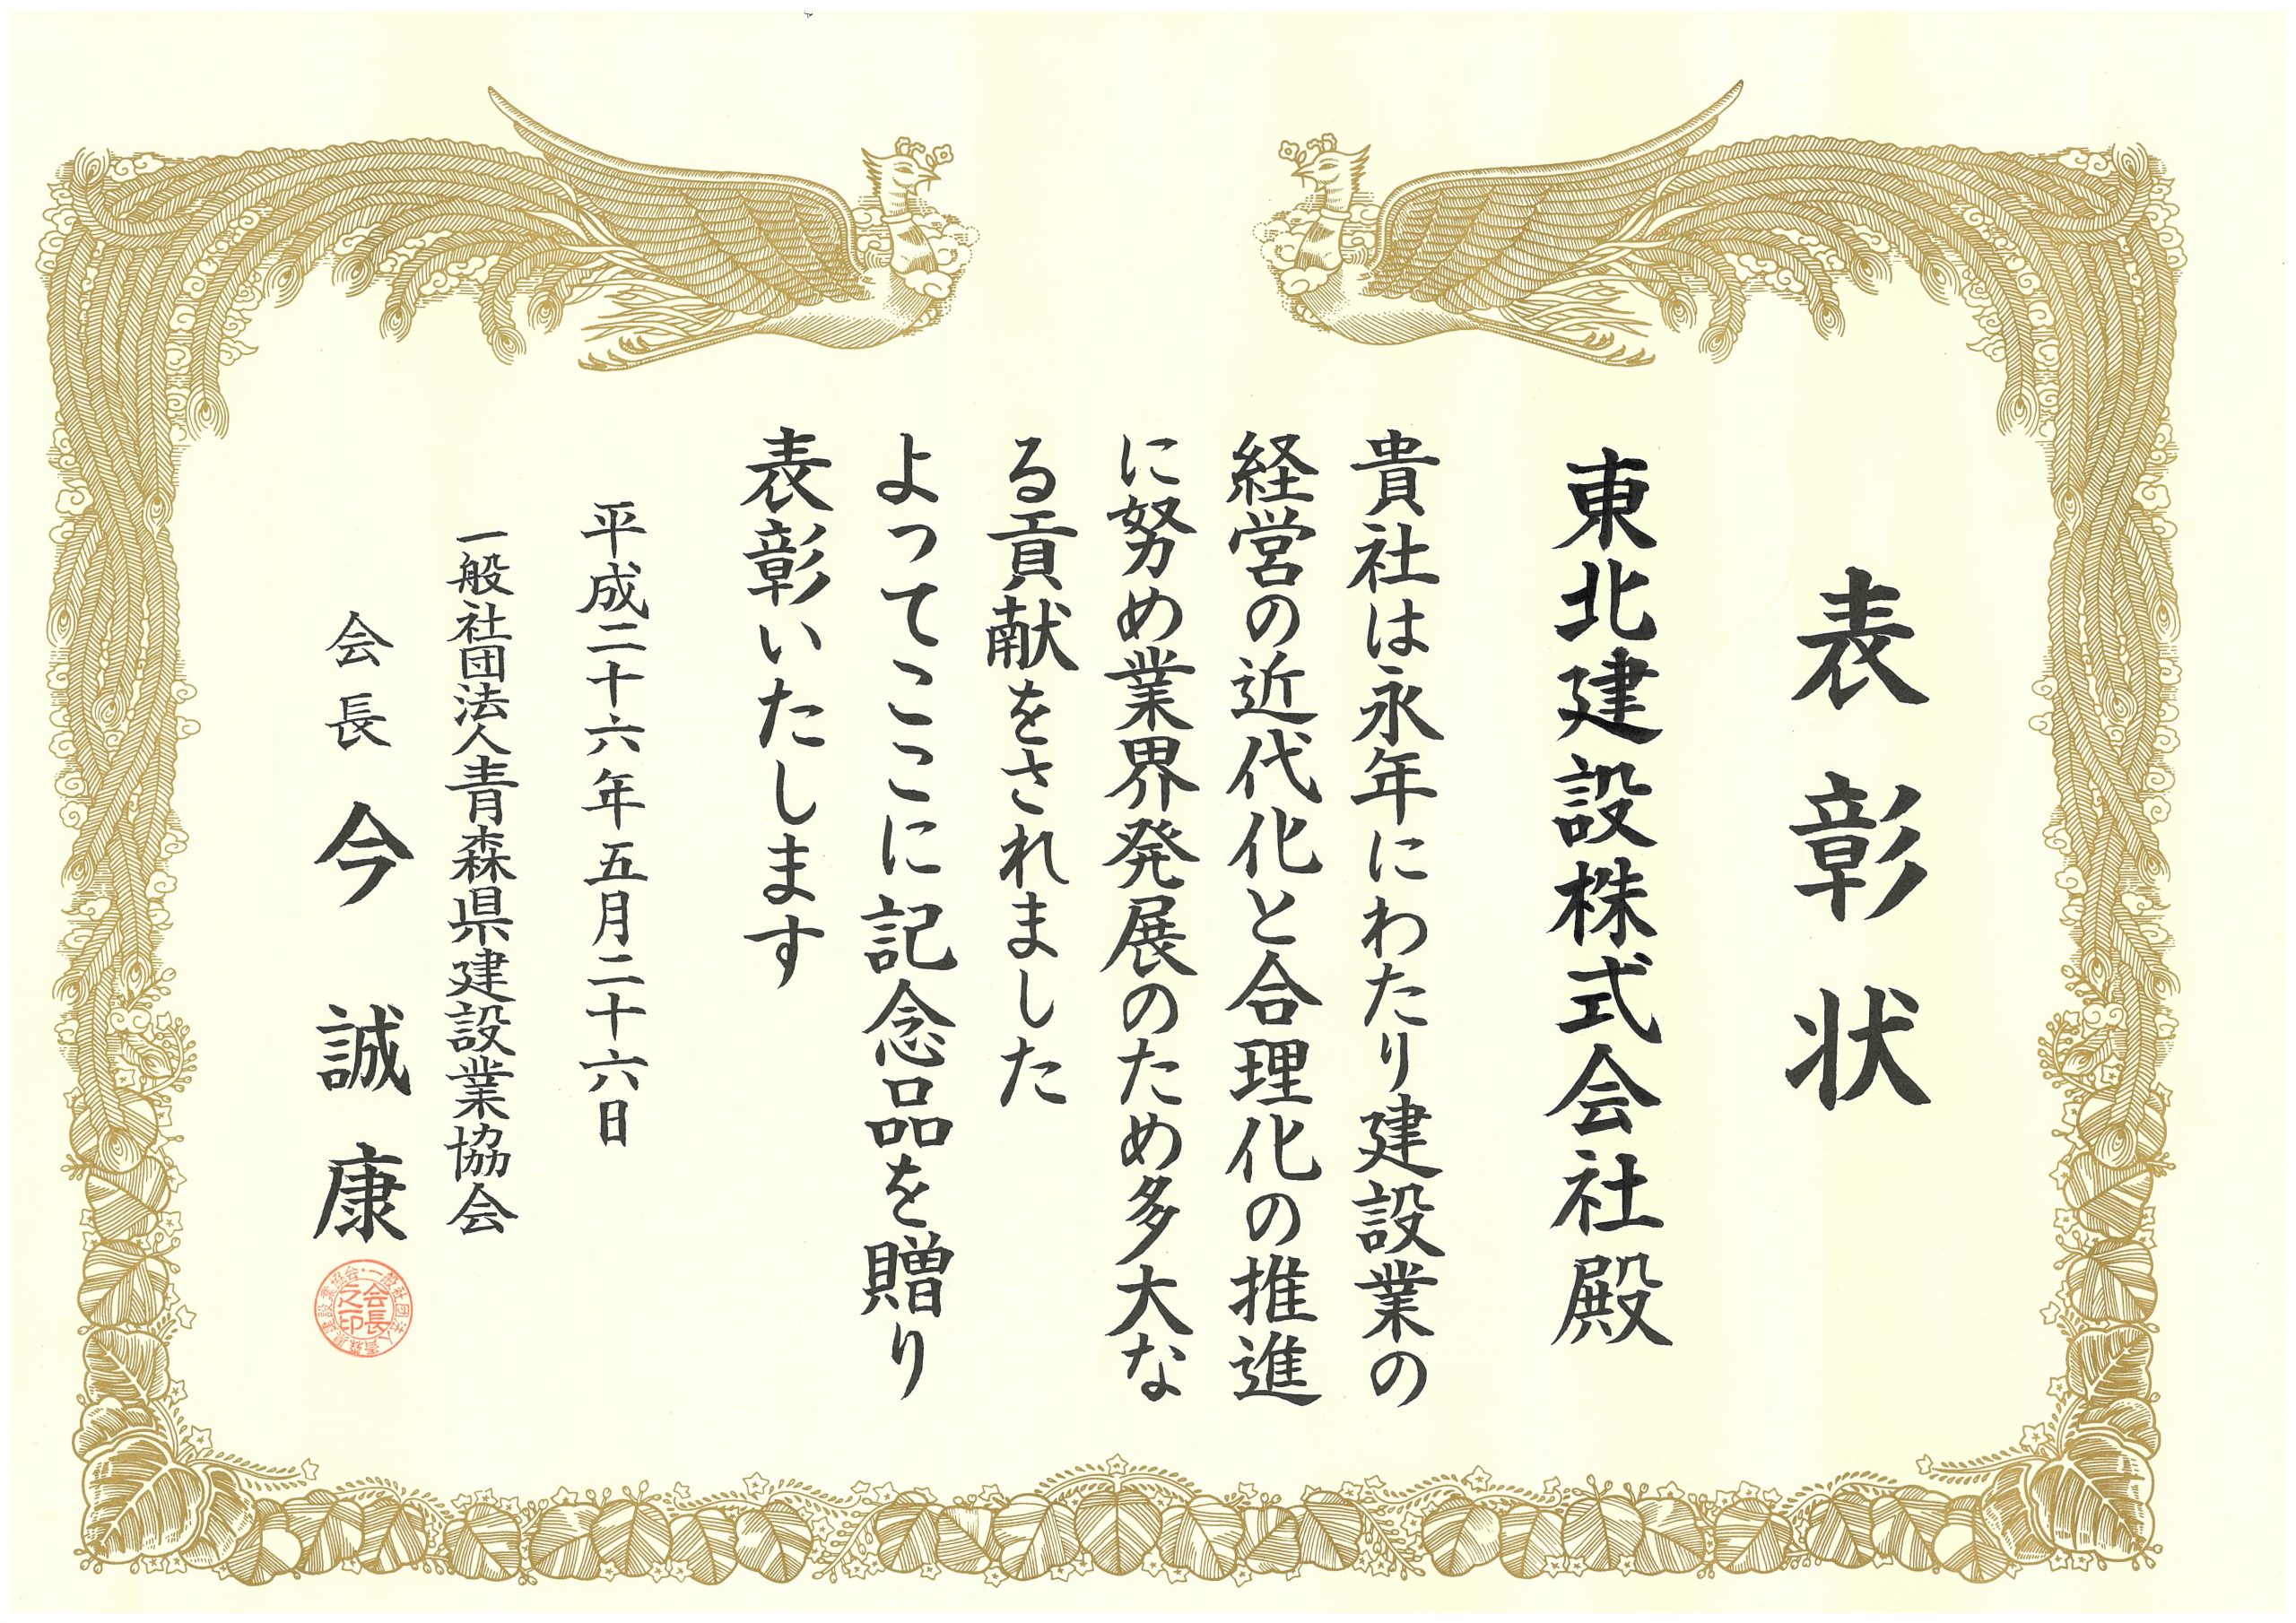 表彰状
東北建設株式会社殿
貴社は永年にわたり建設業の
経営の近代化と合理化の推進
に努め業界発展のため多大な
る貢献をされました
よってここに記念品を贈り
表彰いたします
平成二十六年五月二十六日
一般社団法人青森県建設業協会
会長 今 誠康
一般社団法人青森県建設業協会・
会長之印